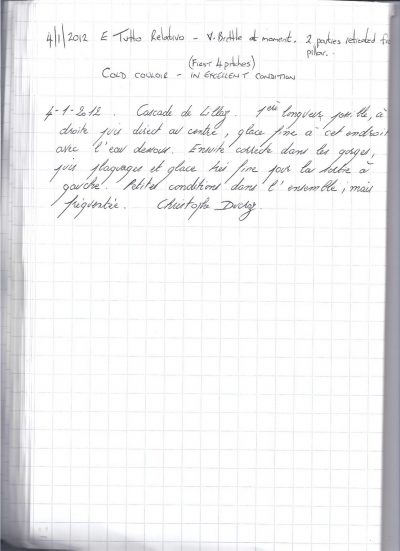 4/1/2012 E Tutto Relativo - V. Brittle at moment. 2 parties retreated fro
pillar.
(First 4 pitches)
COLD COULOIR - IN EXCELLENT CONDITION
4-1-2012. Cascade de Lillaz. 1ère longueur possible, à
droite puis direct au centre, glace fine à cet endroit
avec l'eau dessous. Ensuite correcte dans les gorges,
puis plaquages et glace très fine pour la sortie à
gauche. Petites conditions dans l'ensemble, mais
fréquentée. Christophe